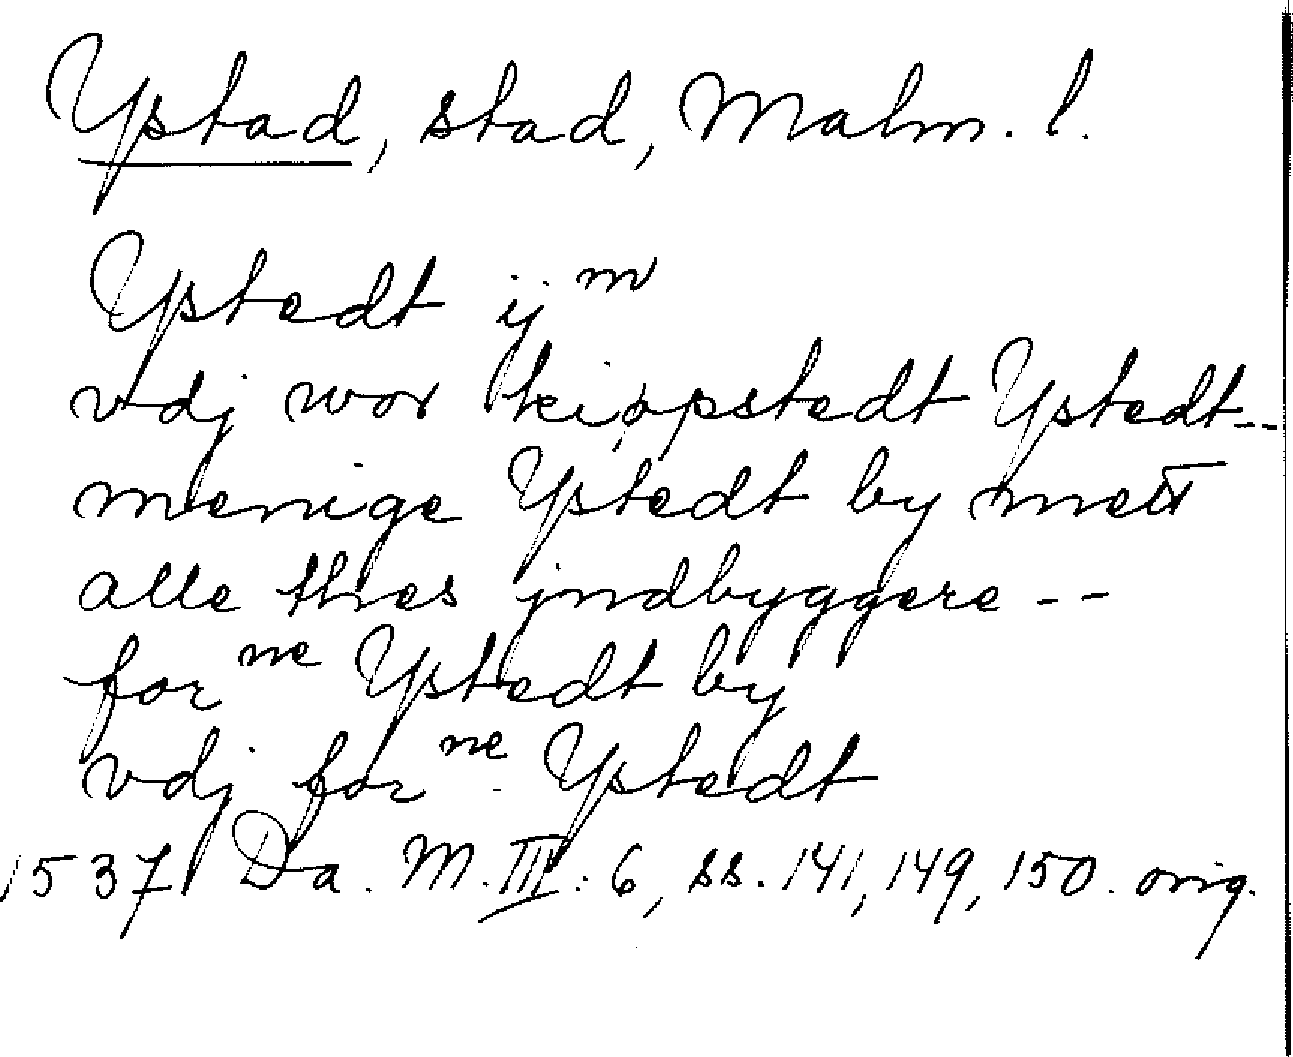 Ystad, stad, Malm. l.
Ystedt ij m
vdj wor keipstedt Ystedt--
menige Ystedt by mett
alle thes jndbyggere --
for ne Ystedt by
vdj for ne Ystedt
1537 Da. M. III: 6, ss. 141, 149, 150. orig.